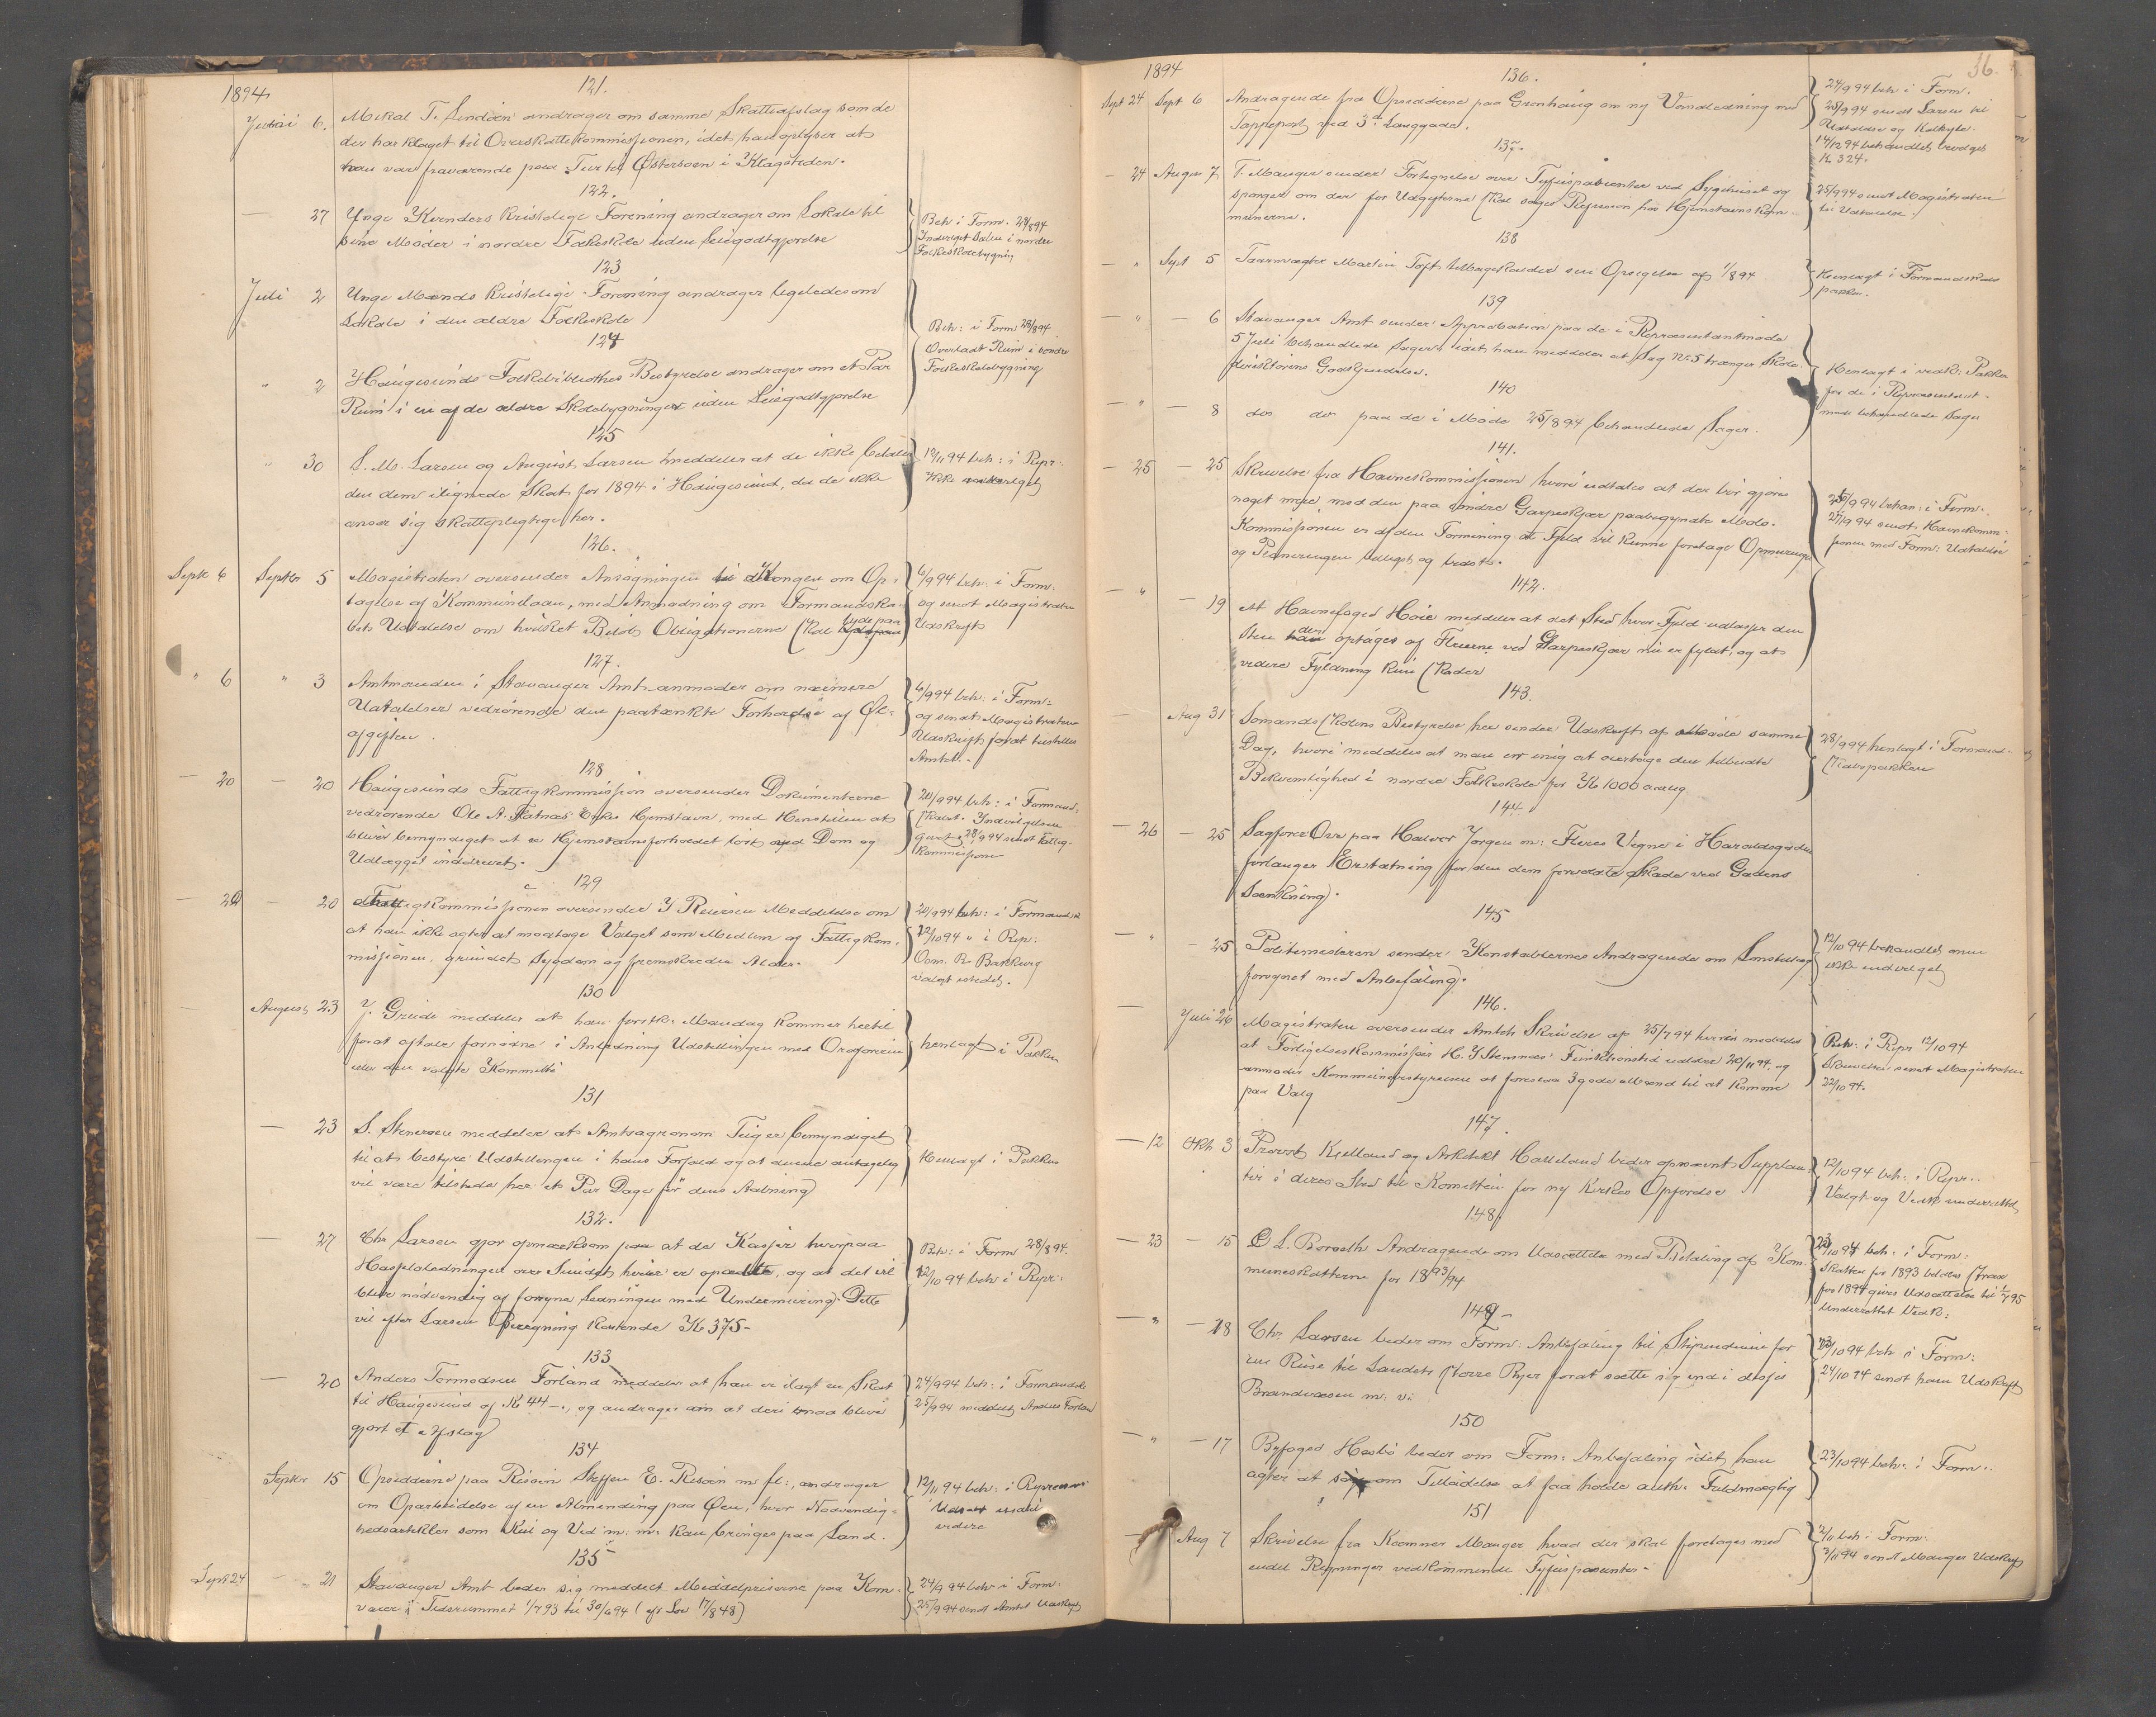 1894
121.
Juli 6. Mikal T. Lindøen andrager om samme Skatteafslag som de
der har klaget til Overskattekommissionen, idet han oplyser at
han var fraværende paa Tur til Østersøen i Klagetiden.
122.
— 27 Unge Kvinders Kristelige Forening andrager om Lokale til
sine Møder i nordre Folkeskole uden Leiegodtgjørelse
Beh i Form. 28/894
Indvilget Salen i nordre
Folkeskolebygning
123
Juli 2 Unge Mænds Kristelige Forening andrager ligeledes om
Lokale i den ældre Folkeskole
124
" 2 Haugesunds Folkebibliotheks Bestyrelse andrager om et Par
Rum i en af de ældre Skolebygninger uden Leiegodtgjørelse
Beh: i Form 28/894
Overladt Rum i søndre
Folkeskolebygning
125
" 30 S. M. Larsen og August Larsen meddeler at de ikke betaler
den dem ilignede Skat for 1894 i Haugesund, da de ikke
anser sig skattepligtige her.
12/11 94 beh: i Repr:
Ikke
126.
Septr 6 Septbr 5 Magistraten oversender Ansøgningen til Kongen om Op-
tagelse af Kommunelaan, med Anmodning om Formandska-
bets Udtalelse om hvilket Beløb Obligationerne skal lyde paa
6/9 94 beh: i Form:
og sendt Magistraten
Udskrift
127.
" 6 " 3 Amtmanden i Stavanger Amt anmoder om nærmere
Udtalelser vedrørende den paatænkte Forhøielse af Øl-
afgiften.
6/9 94 beh: i Form:
og sendt Magistraten
Udskrift forat tilstilles
Amtet.
128
— 20 — 20 Haugesunds Fattigkommission oversender Dokumenterne
vedrørende Ole A. Enkes Hjemstavn, med Henstillen at
bliver bemyndiget at se Hjemstavnsforholdet løst ved Dom og
Udlægget inddrevet.
20/9 94 beh: i Formand-
skabet. Indvilgelsen
28/9 94 sendt Fattig-
kommissionen
129
— 20 — 20 Fattigkommissionen oversender J Reiersen Meddelelse om
at han ikke agter at modtage Valget som Medlem af Fattigkom-
missionen, grundet Sygdom og fremskreden Alder.
20/9 94 beh: i Formandsk
12/10 94 " i Rep:
Oom. R. Bakkevig
valgt istedet.
130
August 23 J. Greide meddeler at han førstk. Mandag kommer hertil
forat aftale fornødne i Anledning Udstillingen med Ordføreren
eller den valgte Kommitté
henlagt i Pakken
131
— 23 S. Stenersen meddeler at Amtsagronom Teig er bemyndiget
til at bestyre Udstillingen i hans Forfald og at denne antagelig
vil være tilstede her et Par Dage før dens Aabning
Henlagt i Pakken
132.
— 27 Chr Larsen gjør opmærksom paa at de Kasser hvorpaa
Haspeledningen over Sundet hviler er opraadte, og at det vil
blive nødvendig at forsyne Ledningen med Undermuring. Dette
vil efter Larsens Beregning kostende Kr 375-
Beh: i Form 28/894.
12/10 94 beh i Repr:
133
— 20 Anders Tormodsen Førland meddeler at han er ilagt en Skat
til Haugesund af Kr 44 —, og andrager om at deri maa blive
gjort et Afslag
24/9 94 beh: i Formandsk
25/9 94 meddelt Anders Førland
134
Septbr 15 Opsidderne paa Risøen Steffen E. Risøen m. fl:, andrager
om Oparbeidelse af en Almending paa Øen, hvor Nødvendig-
hedsartikler som Kul og Ved m: m: kan bringes paa Land.
12/11 94 beh: i
Udsat indtil
videre
135
Sept 24 — 21 Stavanger Amt beder sig meddelt Middelpriserne paa Korn-
varer i Tidsrummet 1/7 93 til 30/6 94 (efr Lov 17/8 48)
24/9 94 beh i Form:
25/9 94 sendt Amtet Udskrift
36.
1894
136.
Sept 24 Sept 6 Andragende fra Opsidderne paa Grønhaug om ny Vandledning med
Tappepost ved 3die Langgade.
24/9 94 beh: i Form.
25/9 94 sendt Larsen til
Udtalelse og Kalkyle.
14/12 94 behandlet bevilget
Kr 324.
137.
— 24 August 7 T. Mauger sender Fortegnelse over Tyfuspatienter ved Sygehuset og
spørger om der for Udgifterne skal søges Refusion hos Hjemstavnskom-
munerne.
25/9 94 sendt Magistraten
til Udtalelse.
138
— " Sept 5 Taarnvægter Martin Toft tilbagekalder sin Opsigelse af 1/894
Henlagt i Formandskabs
pakken.
139
— " — 6 Stavanger Amt sender Approbation paa de i Repræsentantmøde
5 Juli behandlede Sager, idet han meddeler at Sag No 5 trænger Skole-
direktionens Godkjendelse.
140
— " — 8 dos dos paa de i Møde 25/894 behandlede Sager.
Henlagt i vedk: Pakke
for de i Repræsentant-
møde behandlede Sager
141.
— 25 — 25 Skrivelse fra Havnekommissionen hvori udtales at der bør gjøres
noget mere med den paa søndre Garpeskjær paabegyndte Molo.
Kommissionen er af den Formening at Fyld vil kunne foretage Opmuringen
og Planeringen billigst og bedst.
25/9 94 behan: i Form.
27/9 94 sendt Havnekomm-
sionen med Form: Udtalelse
142.
— " — 19 At Havnefoged Høie meddeler at det Sted hvor Fyld udlasser den
Sten der optages af Fluerne ved Garpeskjær nu er fyldt, og at
videre Fyldning kun skader
143.
— Aug 31 Sømandsskolens Bestyrelse her sender Udskrift af Møde samme
Dag, hvori meddeles at man er enig at overtage den tilbudte
Bekvemmelighed i nordre Folkeskole for Kr 1000 aarlig
28/9 94 henlagt i Formand-
skabspakken
144
— 26 — 25 Sagfører Ove paa Halvor Jørgen m: Fleres Vegne i Haraldsgaden
forlanger Erstatning for den dem forvoldte Skade ved Gadens
Sænkning.
145
— " — 25 Politimesteren sender Konstablernes Andragende om Lønstillæg
forsynet med Anbefaling.
12/10 94 behandlet men
ikke indvilget
146.
— Juli 26 Magistraten oversender Amtets Skrivelse af 25/7 94 hvori meddeles
at Forligelseskommissær H. J Stemnæs' Funktionstid udløber 20/11 94, og
anmoder Kommunebestyrelsen at foreslaa 3 gode Mænd til at komme
paa Valg
Beh: i Repr 12/10 94
Skrivelse sendt Magistraten
22/10 94.
147
— 12 Oktb 3 Provst Kielland og Arkitekt Halleland beder opnævnt Supplean-
ter i deres Sted til Komitéen for ny Kirkes Opførelse
12/10 94 beh: i Repr..
Valgt og Vedk underrettet
148
— 23 — 15 L. Boroth Andragende om Udsættelse med Betaling af Kom-
muneskatterne for 1893/94
23/10 94 beh: i Form:
Skatten for 1893 betales strax
for 1894 gives Udsættelse til 1/7 95
Underrettet Vedk:
149
— " — 18 Chr Larsen beder om Form: Anbefaling til Stipendium for
en Reise til Landets større Byer forat sætte sig ind i disses
Brandvæsen m: v:
23/10 94 beh i Form:
24/10 94 sendt ham Udskrift
150
— " — 17 Byfoged Hasbo beder om Form: Anbefaling idet han
agter at søge om Tilladelse at faa holde auth. Fuldmægtig
23/10 94 beh: i Form:
151
— Aug 7 Skrivelse fra Kæmner Mauger hvad der skal foretages med
endel Regninger vedkommende Tyfuspasienter
2/11 beh i Form:
3/11 94 sendt Mauger Udskrift